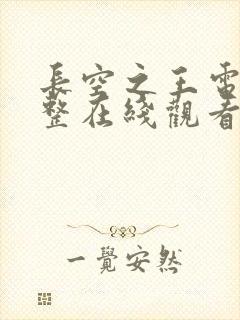 長空之王電
整在綫觀看
一覺安然